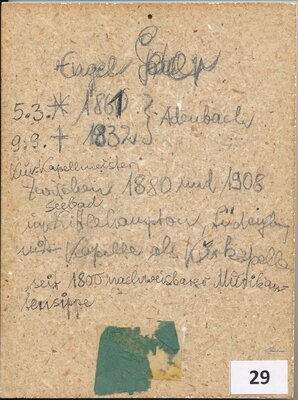 Engel
5.3. * 1861 } Adenbach
9.9. † 1932
Kur-Kapellmeister
zwischen 1880 und 1908
Seebad
in Littlehampton, Südengl.
mit Kapelle als Kurkapelle
seit 1800 nachweisbare Musikan-
tensippe
29